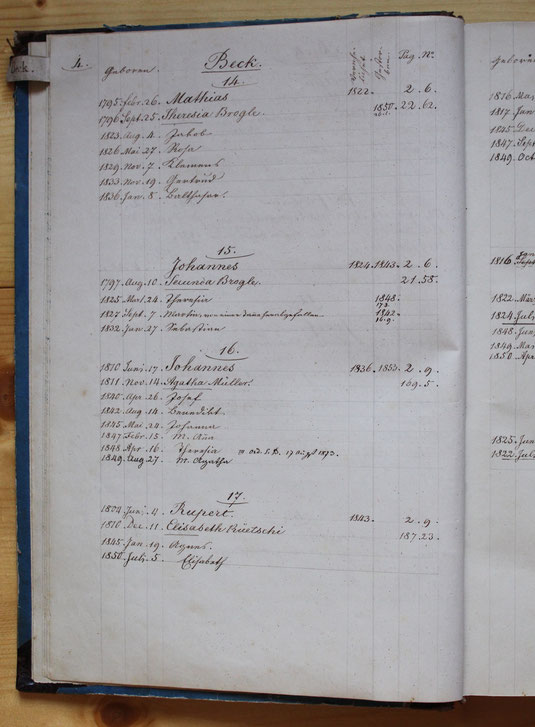 Beck.
4.
Geboren. Beck. Pag. Nº.
14.
1795. Febr. 26. Mathias 1822. 2. 6.
1796. Sept. 25. Theresia Brogle. 1850. 22. 62.
1823. Aug. 4. Jakob
1826. Mai. 27. Rosa
1829. Nov. 7. Klemens
1833. Nov. 19. Gertrud
1836. Jan. 8. Balthasar.
15.
Johannes 1824. 1843. 2. 6.
1797. Aug. 10. Secunda Brogle. 21. 58.
1825. Mai. 24. Theresia 1848.
1827. Sept. 7. Martin, 1842.
16. 9.
1832. Jan. 27. Sebastian
16.
1810 Juni. 17. Johannes 1836. 1855. 2. 9.
1811. Nov. 14. Agatha Müller. 149. 5.
1840. Apr. 26. Josef
1842. Aug. 14. Benedikt.
1845. Mai 24. Johanna
1847. Febr. 15. M. Ana
1848 Apr. 16. Theresia 1873.
1849. Aug. 27. M. Agatha
17.
1804. Jun. 4. Rupert. 1843. 2. 9.
1810. Dec. 11. Elisabeth Rüetschi 187. 23.
1845. Jan. 19. Agnes.
1850. Juli. 5. Elisabeth
Geboren
1816
1817. Jan
1825
1847. Sept
1849. Oct
1816
1822. März
1824. Juli
1848. Jun
1849. Mai
1850. Apr
1825. Jun
1822. Juli